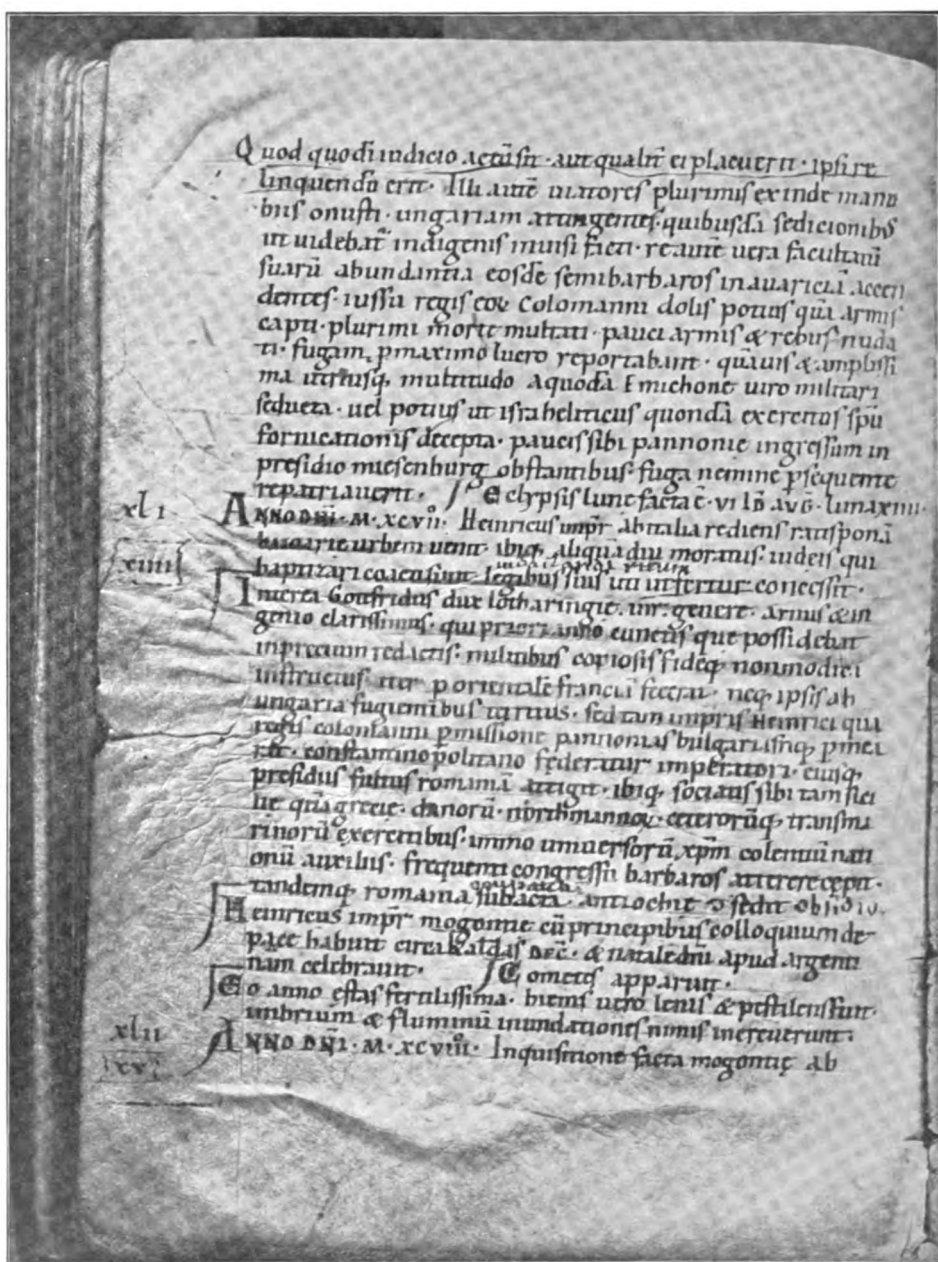 Quod quo di iudicio actū sit · aut qualit̄ ei placuerit · ipsi re
linquendū erit · Illi autē uiatores plurimis exinde manu
biis onusti · ungariam attingentes · quibusdā sedicionibus
ut uidebat̄ indigenis inuisi facti · re autē uera facultatū
suarū abundantia eosdē semibarbaros in auariciā accen
dentes · iussu regis eoꝝ Colomanni dolis potius quā armis
capti · plurimi morte multati · pauci armis & rebus nuda
ti · fugam p maximo lucro reportabant · quāuis & amplissi
ma utriusq, multitudo a quodā Emichone uiro militari
seducta · uel potius ut israheliticus quondā exercitus spū
fornicationis decepta · paucis sibi pannonie ingressum in
presidio miesenburg obstantibus fuga nemine psequente
repatriauerit · Eclypsis lune facta ē · VI id̄ auḡ · luna xiiii ·
xli
ANNO DN̄I · M · XCVII · Heinricus impr̄ ab italia rediens ratisponā
baioarie urbem uenit · ibiq, aliquādiu moratus · iudeis qui
xiiii
baptizari coacti sunt legibus suis uti ut fertur concessit ·
Interea Gotifridus dux lotharingie · uir genere · armis & in
genio clarissimus · qui priori anno cunctis que possidebat
in precium redactis · militibus copiosis fideq, non modica
instructus · iter p orientalē franciā fecerat · neq, ipsis ab
ungaria fugientibus territus · sed tam impris Heinrici quā
regis colomanni pmissione pannonias bulgariasq, p
constantinopolitano federatur imperatori · eiusq,
presidiis fultus romaniā attigit · ibiq, sociatis sibi tam sici
lie quā grecie · danorū · northmannoꝝ · ceterorūq, transma
rinorū exercitibus · immo uniuersorū xp̄m colentiū nati
onū auxiliis · frequenti congressu barbaros atterere cepit ·
tandemq, romania subacta antiochie
Heinricus impr̄ mogontie cū principibus colloquium de
pace habuit circa kaldās Dec̄ · & natale dn̄i apud argenti
nam celebrauit · Cometes apparuit ·
Eo anno ęstas fertilissima · hiems uero lenis & pestilens fuit ·
imbrium & fluminū inundationes nimis increuerunt ·
xlii
ANNO DN̄I · M · XCVIII · Inquisitione facta mogontię ab
xv